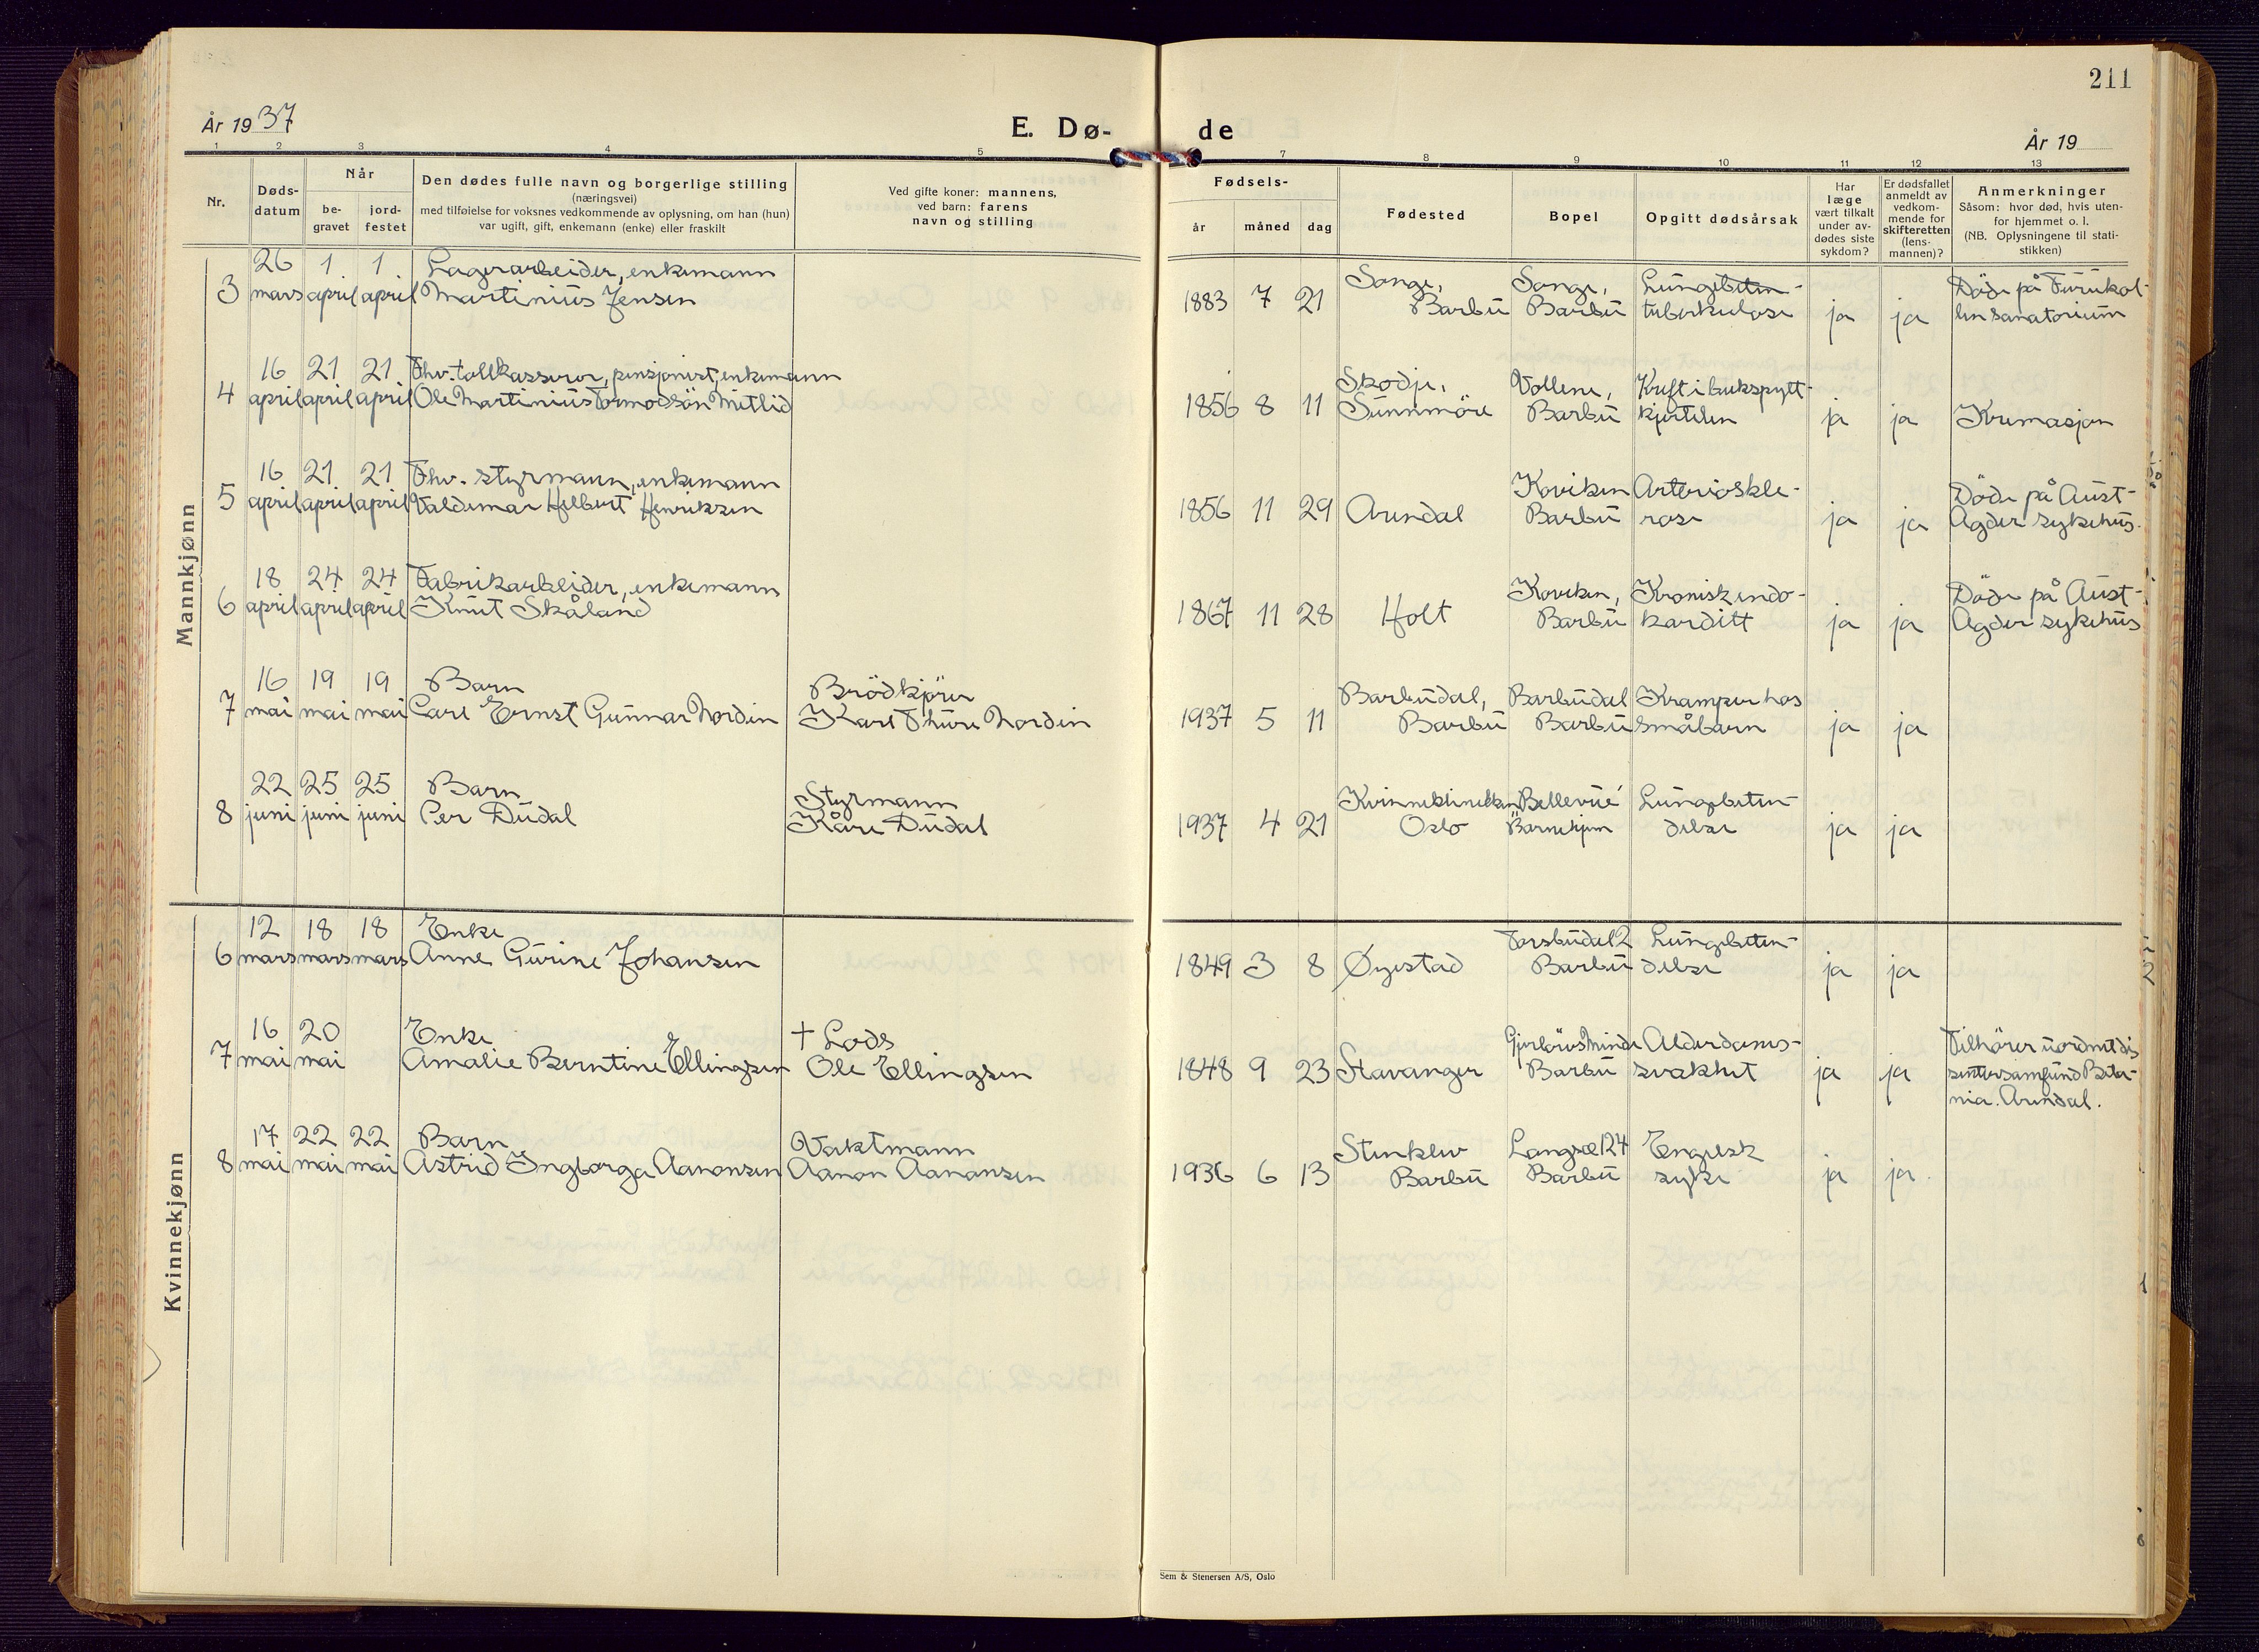 211
År 1937
E. Dø-
de
År 19
1 2 3 4 5 7 8 9 10 11 12 13
Nr.
Døds-
datum
Når
be-
gravet
jord-
festet
Den dødes fulle navn og borgerlige stilling
(næringsvei)
med tilføielse for voksnes vedkommende av oplysning, om han (hun)
var ugift, gift, enkemann (enke) eller fraskilt
Ved gifte koner: mannens,
ved barn: farens
navn og stilling
Fødsels-
år måned dag
Fødested
Bopel
Opgitt dødsårsak
Har
læge
vært tilkalt
under av-
dødes siste
sykdom?
Er dødsfallet
anmeldt av
vedkom-
mende for
skifteretten
(lens-
mannen)?
Anmerkninger
Såsom: hvor død, hvis uten-
for hjemmet o. l.
(NB. Oplysningene til stati-
stikken)
Mannkjønn
26 1. 1. Lagerarbeider, enkemann
3 mars april april Martinius Jensen
Songe, Songe, Lungebeten- Döde på Furukol-
1883 7 21 Barbu Barbu tuberkulose ja ja len sanatorium
16 21 21 Fhv. tollkasserer, pensjonist, enkemann
4 april april april Ole Martinius Tormodsön Metlid
Skodje, Vollene, Kreft i bukspytt-
1856 8 11 Sunnmöre Barbu kjertelen ja ja Kremasjon
16 21 21 Fhv. styrmann, enkemann
5 april april april Valdemar Helbert Henriksen
Koviken Arterioskle- Döde på Aust-
1856 11 29 Arendal Barbu rose ja ja Agder sykehus.
18 24 24 Fabrikarbeider, enkemann
6 april april april Knut Skåland
Koviken, Kronisk endo- Döde på Aust-
1867 11 28 Holt Barbu karditt ja ja Agder sykehus
16 19 19 Barn Brödkjörer
7 mai mai mai Carl Ernst Gunnar Nordin Karl Thure Nordin
Barbudal, Barbudal Kramper hos
1937 5 11 Barbu Barbu småbarn ja ja
22 25 25 Barn Styrmann
8 juni juni juni Per Dudal Kåre Dudal
Kvinneklinikken Bellevue Lungebeten-
1937 4 21 Oslo Barnehjem delse ja ja
Kvinnekjønn
12 18 18 Enke
6 mars mars mars Anne Gurine Johansen
Torsbudal 2 Lungebeten-
1849 3 8 Øyestad Barbu delse ja ja
16 20 Enke † Lods
7 mai mai Amalie Berntine Ellingsen Ole Ellingsen
Minde Alderdoms- Tilhörer uordnet dis
1848 9 23 Stavanger Barbu svakhet ja ja sentersamfund Beta-
nia. Arendal.
17 22 22 Barn Vaktmann
8 mai mai mai Astrid Ingborga Aanonsen Aanon Aanonsen
Stenklev Langsæ 124 Engelsk
1936 6 13 Barbu Barbu syke ja ja
Sem & Stenersen A/S, Oslo